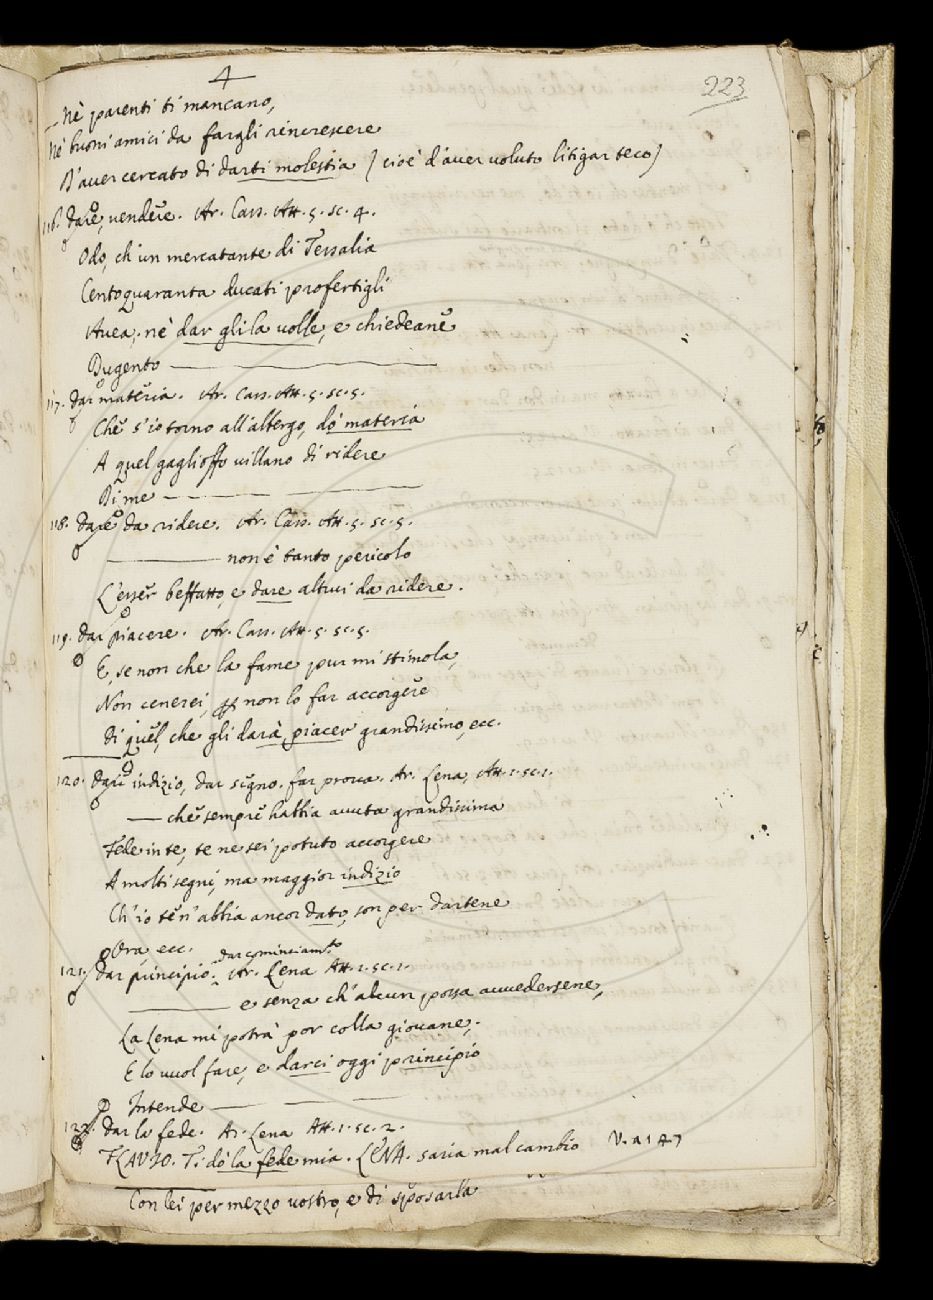 4
223
— Nè parenti ti mancano,
Nè buoni amici da fargli rincrescere
D'aver cercato di darti molestia (cioè d'aver voluto litigar teco)
116. dare, vendere. Ar. Cass. Att. 5. sc. 4.
Odo, ch'un mercatante di Tessalia
Centoquaranta ducati profertigli
Avea; nè dar gli la volle, e chiedeane
Dugento ———
117. dar materia. Ar. Cass. Att. 5. sc. 5.
Che s'io torno all'albergo, dò materia
A quel gaglioffo villano di ridere
Di me — — —
118. dare da ridere. Ar. Cass. Att. 5. sc. 5.
——— non è tanto pericolo
L'esser beffatto, e dare altrui da ridere.
119. dar piacere. Ar. Cass. Att. 5. sc. 5.
E, se non che la fame pur mi stimola,
Non cenerei, per non lo far accorgere
Di quel, che gli darà piacer grandissimo, ecc.
120. dare indizio, dar segno. far prova. Ar. Lena, Att. 1. sc. 1.
— che sempre habbia avuta grandissima
Fede in te, te ne sei potuto accorgere
A molti segni, ma maggior indizio
Ch'io te n'abbia ancor dato, son per dartene
Ora, ecc.
dar cominciam.to
121. dar principio. Ar. Lena Att. 1. sc. 1.
——— e senza ch'alcun possa avvedersene,
La Lena mi potrà por colla giovane,
E lo vuol fare, e darci oggi principio
Intende — — —
122. dar la fede. Ar. Lena Att. 1. sc. 2.
FLAVIO. Ti dò la fede mia. LENA. saria mal cambio V. a 147
Con lei per mezzo vostro, e di sposarla